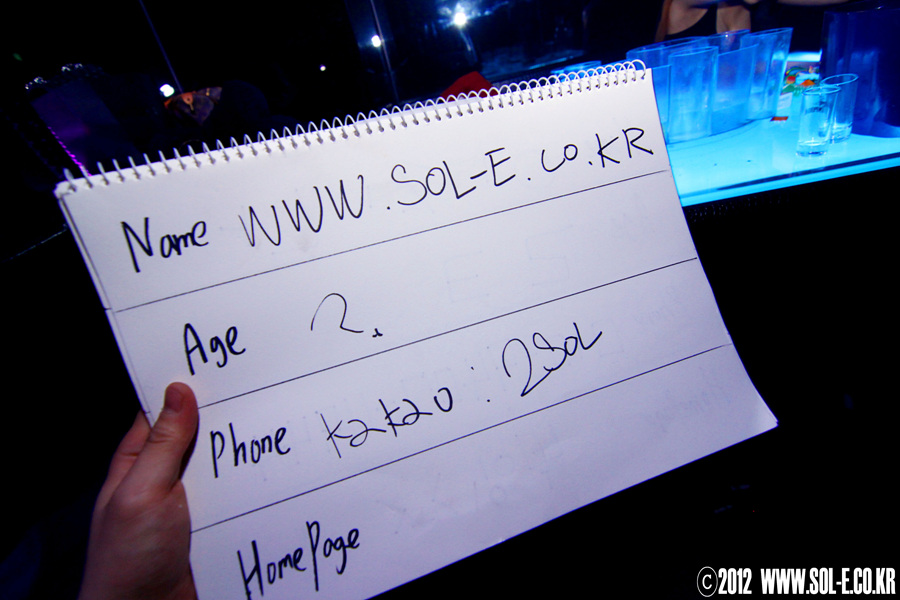 Name WWW.SOL-E.CO.KR
Age ?.
Phone kakao : 2SOL
HomePage
©2012 WWW.SOL-E.CO.KR